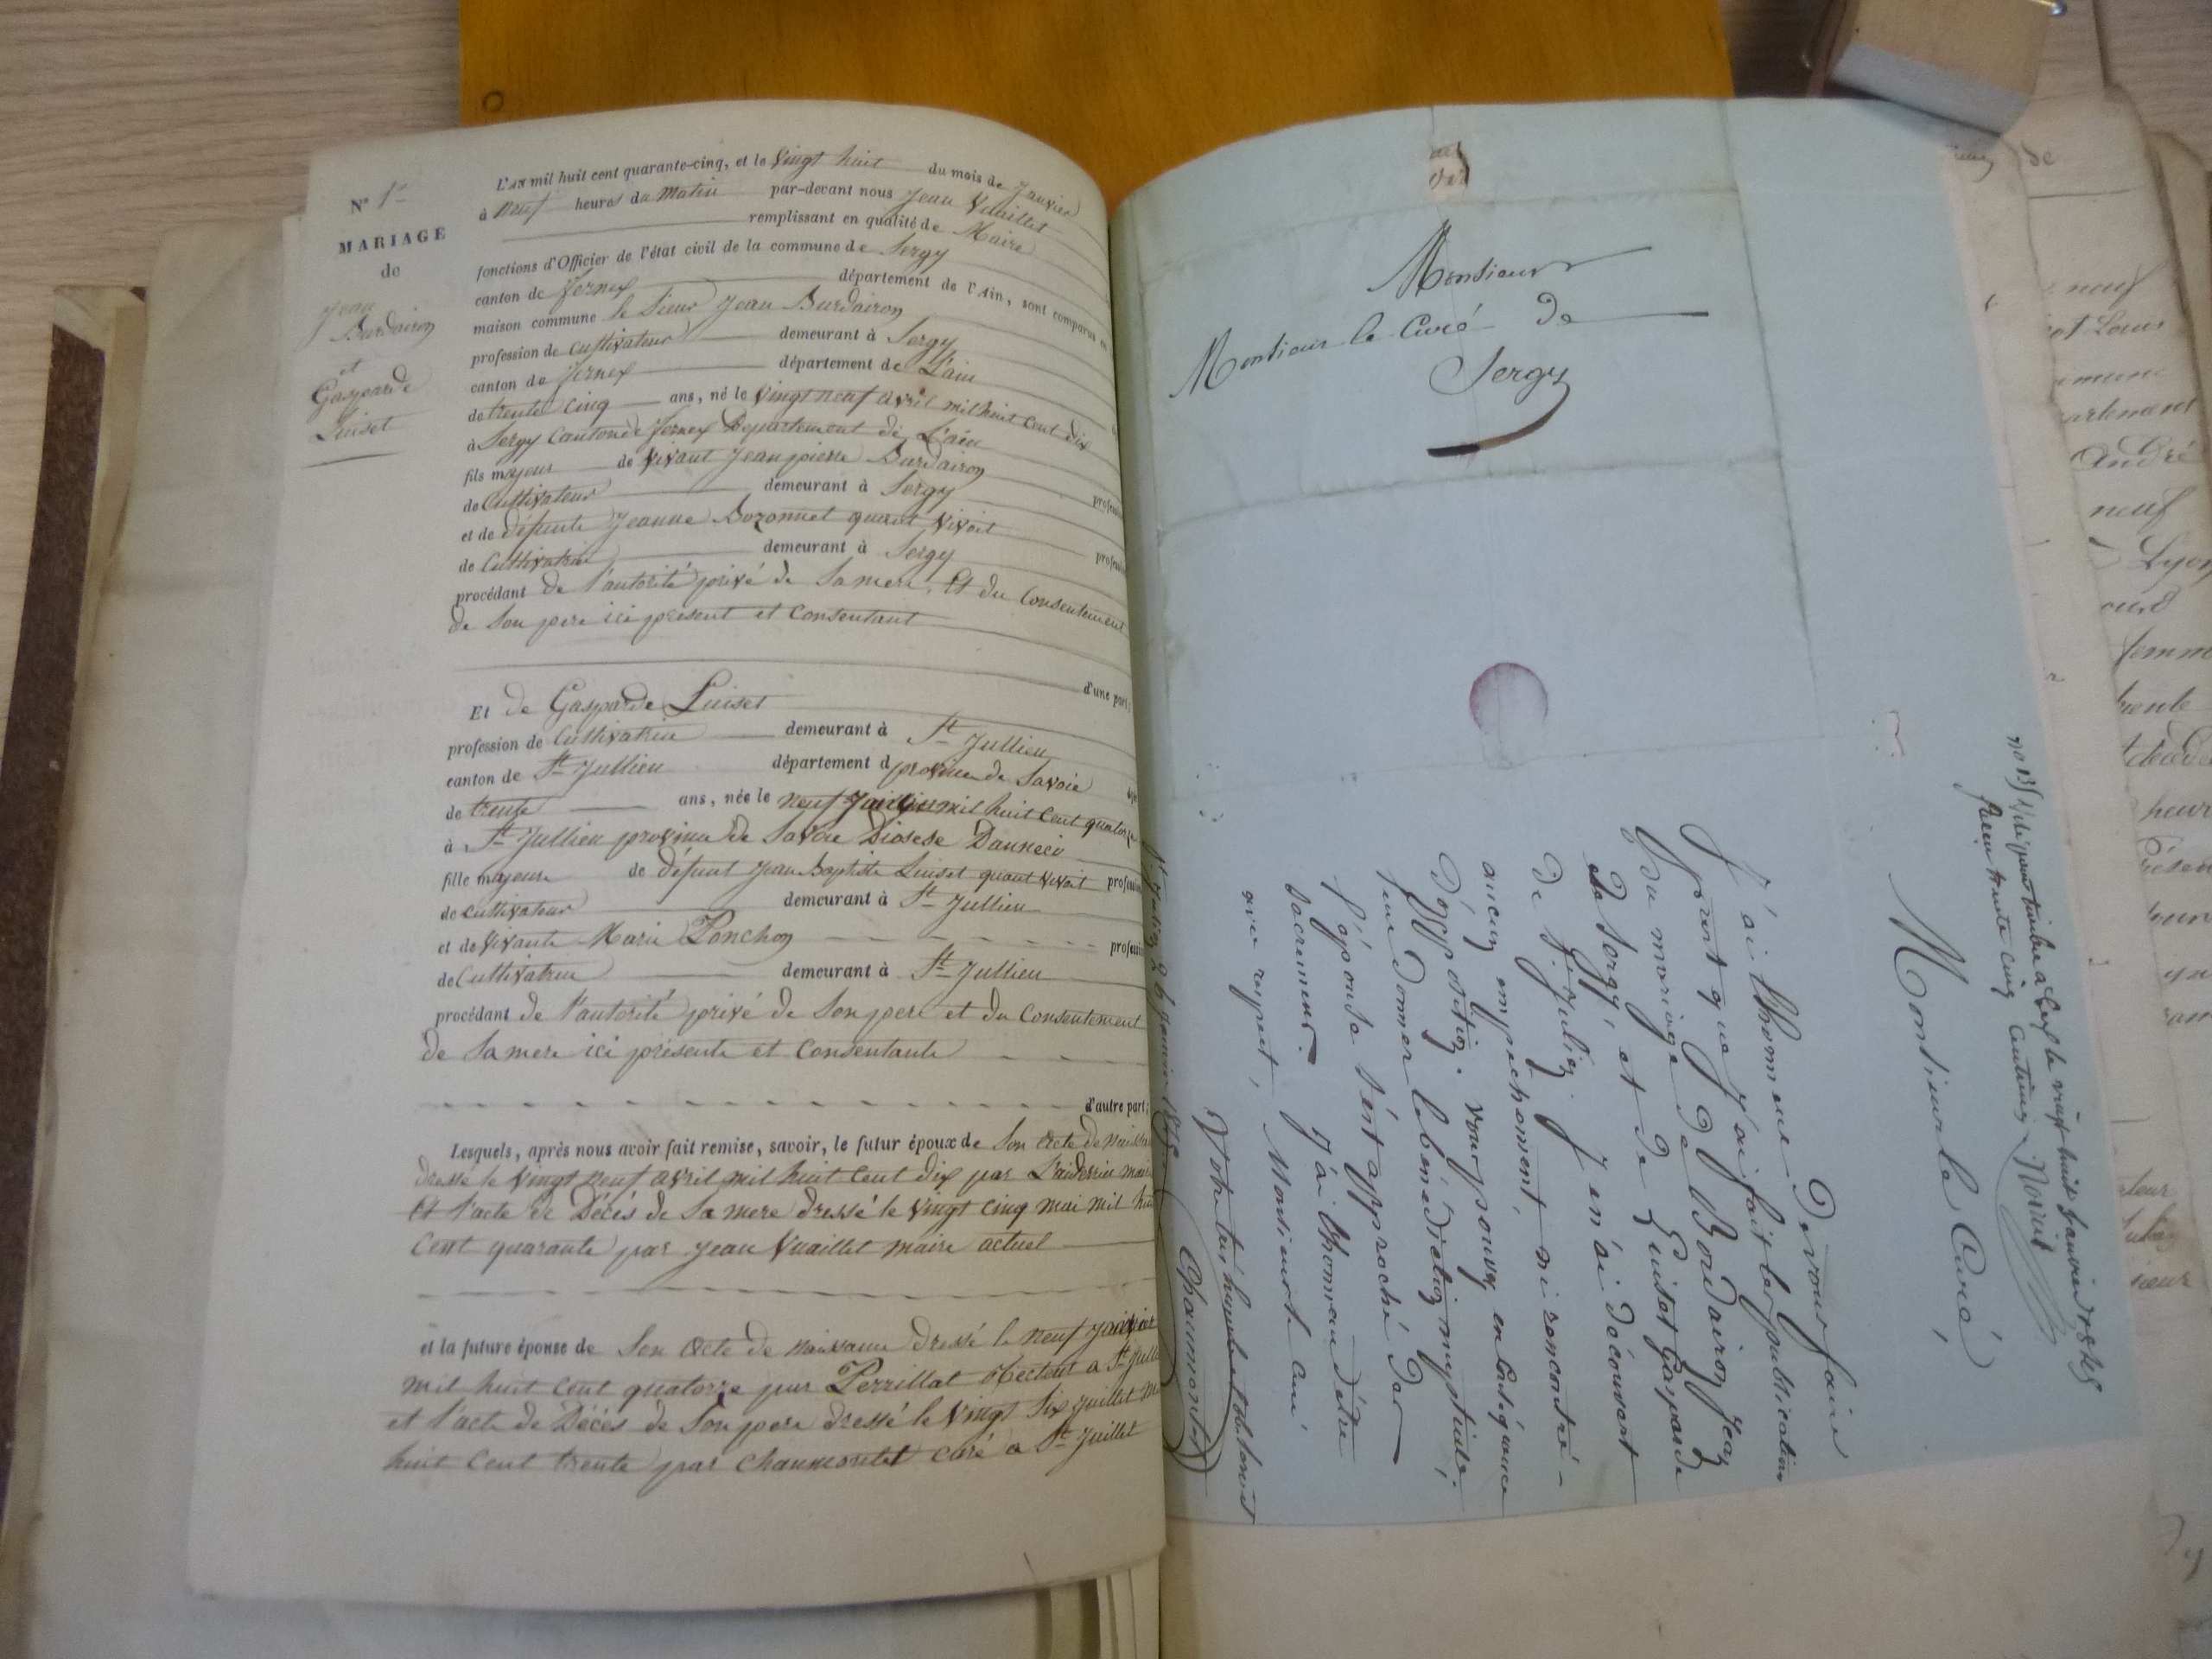 N° 1er
MARIAGE
de
Jean
Burdairon
et
Gasparde
Luiset
L'an mil huit cent quarante-cinq, et le Vingt huit du mois de Janvier
à neuf heures du Matin par-devant nous Jean Vuaillet
remplissant en qualité de Maire
fonctions d'Officier de l'état civil de la commune de Sergy
canton de Fernex département de l'Ain, sont comparus en
maison commune le Sieur Jean Burdairon
profession de cultivateur demeurant à Sergy
canton de Fernex département de L'ain
de trente cinq ans, né le Vingt neuf avril mil huit cent dix
à Sergy Canton de Fernex Departement de L'ain
fils majeur de Vivant Jean pierre Burdairon profession
de Cultivateur demeurant à Sergy
et de défunte Jeanne Bozonnet quant Vivoit profession
de Cultivatrice demeurant à Sergy
procédant de l'autorité privé de Sa mere, Et du Consentement
de Son pere ici présent et Consentant
d'une part;
Et de Gasparde Luiset
profession de Cultivatrice demeurant à St Jullien
canton de St Jullien département d province de Savoie
de trente ans, née le neuf mil huit Cent quatorze
à St Jullien province de Savoie Diosese Danneci
fille majeure de défunt Jean Baptiste Luiset quant Vivoit profession
de cultivateur demeurant à St Jullien
et de Vivante Marie Ponchon profession
de Cultivatrice demeurant à St Jullien
procédant de l'autorité privé de Son pere et du Consentement
de Sa mere ici présente et Consentante
d'autre part;
Lesquels, après nous avoir fait remise, savoir, le futur époux de Son Acte de Naissan
dressé le Vingt neuf avril mil huit Cent dix par
Et l'acte de Décés de Sa mere dressé le Vingt Cinq mai mil hui
Cent quarante par Jean Vuaillet maire actuel
et la future épouse de Son Acte de Naissance dressé le neuf
mil huit cent quatorze par Perrillat Recteur a St Julli
et l'acte de Décés de Son pere dressé le Vingt Six Juillet Mil
huit Cent trente par Chaumontet Curé a St Juillet
Monsieur
Monsieur le Curé de
Sergy
n° 13 Visé pour timbre à Gex le vingt huit Janvier 1845
Reçu trente cinq Centimes
Monsieur le Curé,
J'ai l'honneur de vous faire
part que j'ai fait les publications
du mariage de Bordairon Jean
de Sergy, et de Luiset Gasparde
de St Julien. Je n'ai découvert
aucun empechement, ni rencontré
d'opposition. Vous pouvez en Conséquence
leur donner la bénédiction nuptiale.
l'épouse s'est approché des
Sacremens. J'ai l'honneur d'être
avec respect, Monsieur le Curé
Votre tres humble et obt serviteur
St Julien 26 janvier 1845 Chaumontet